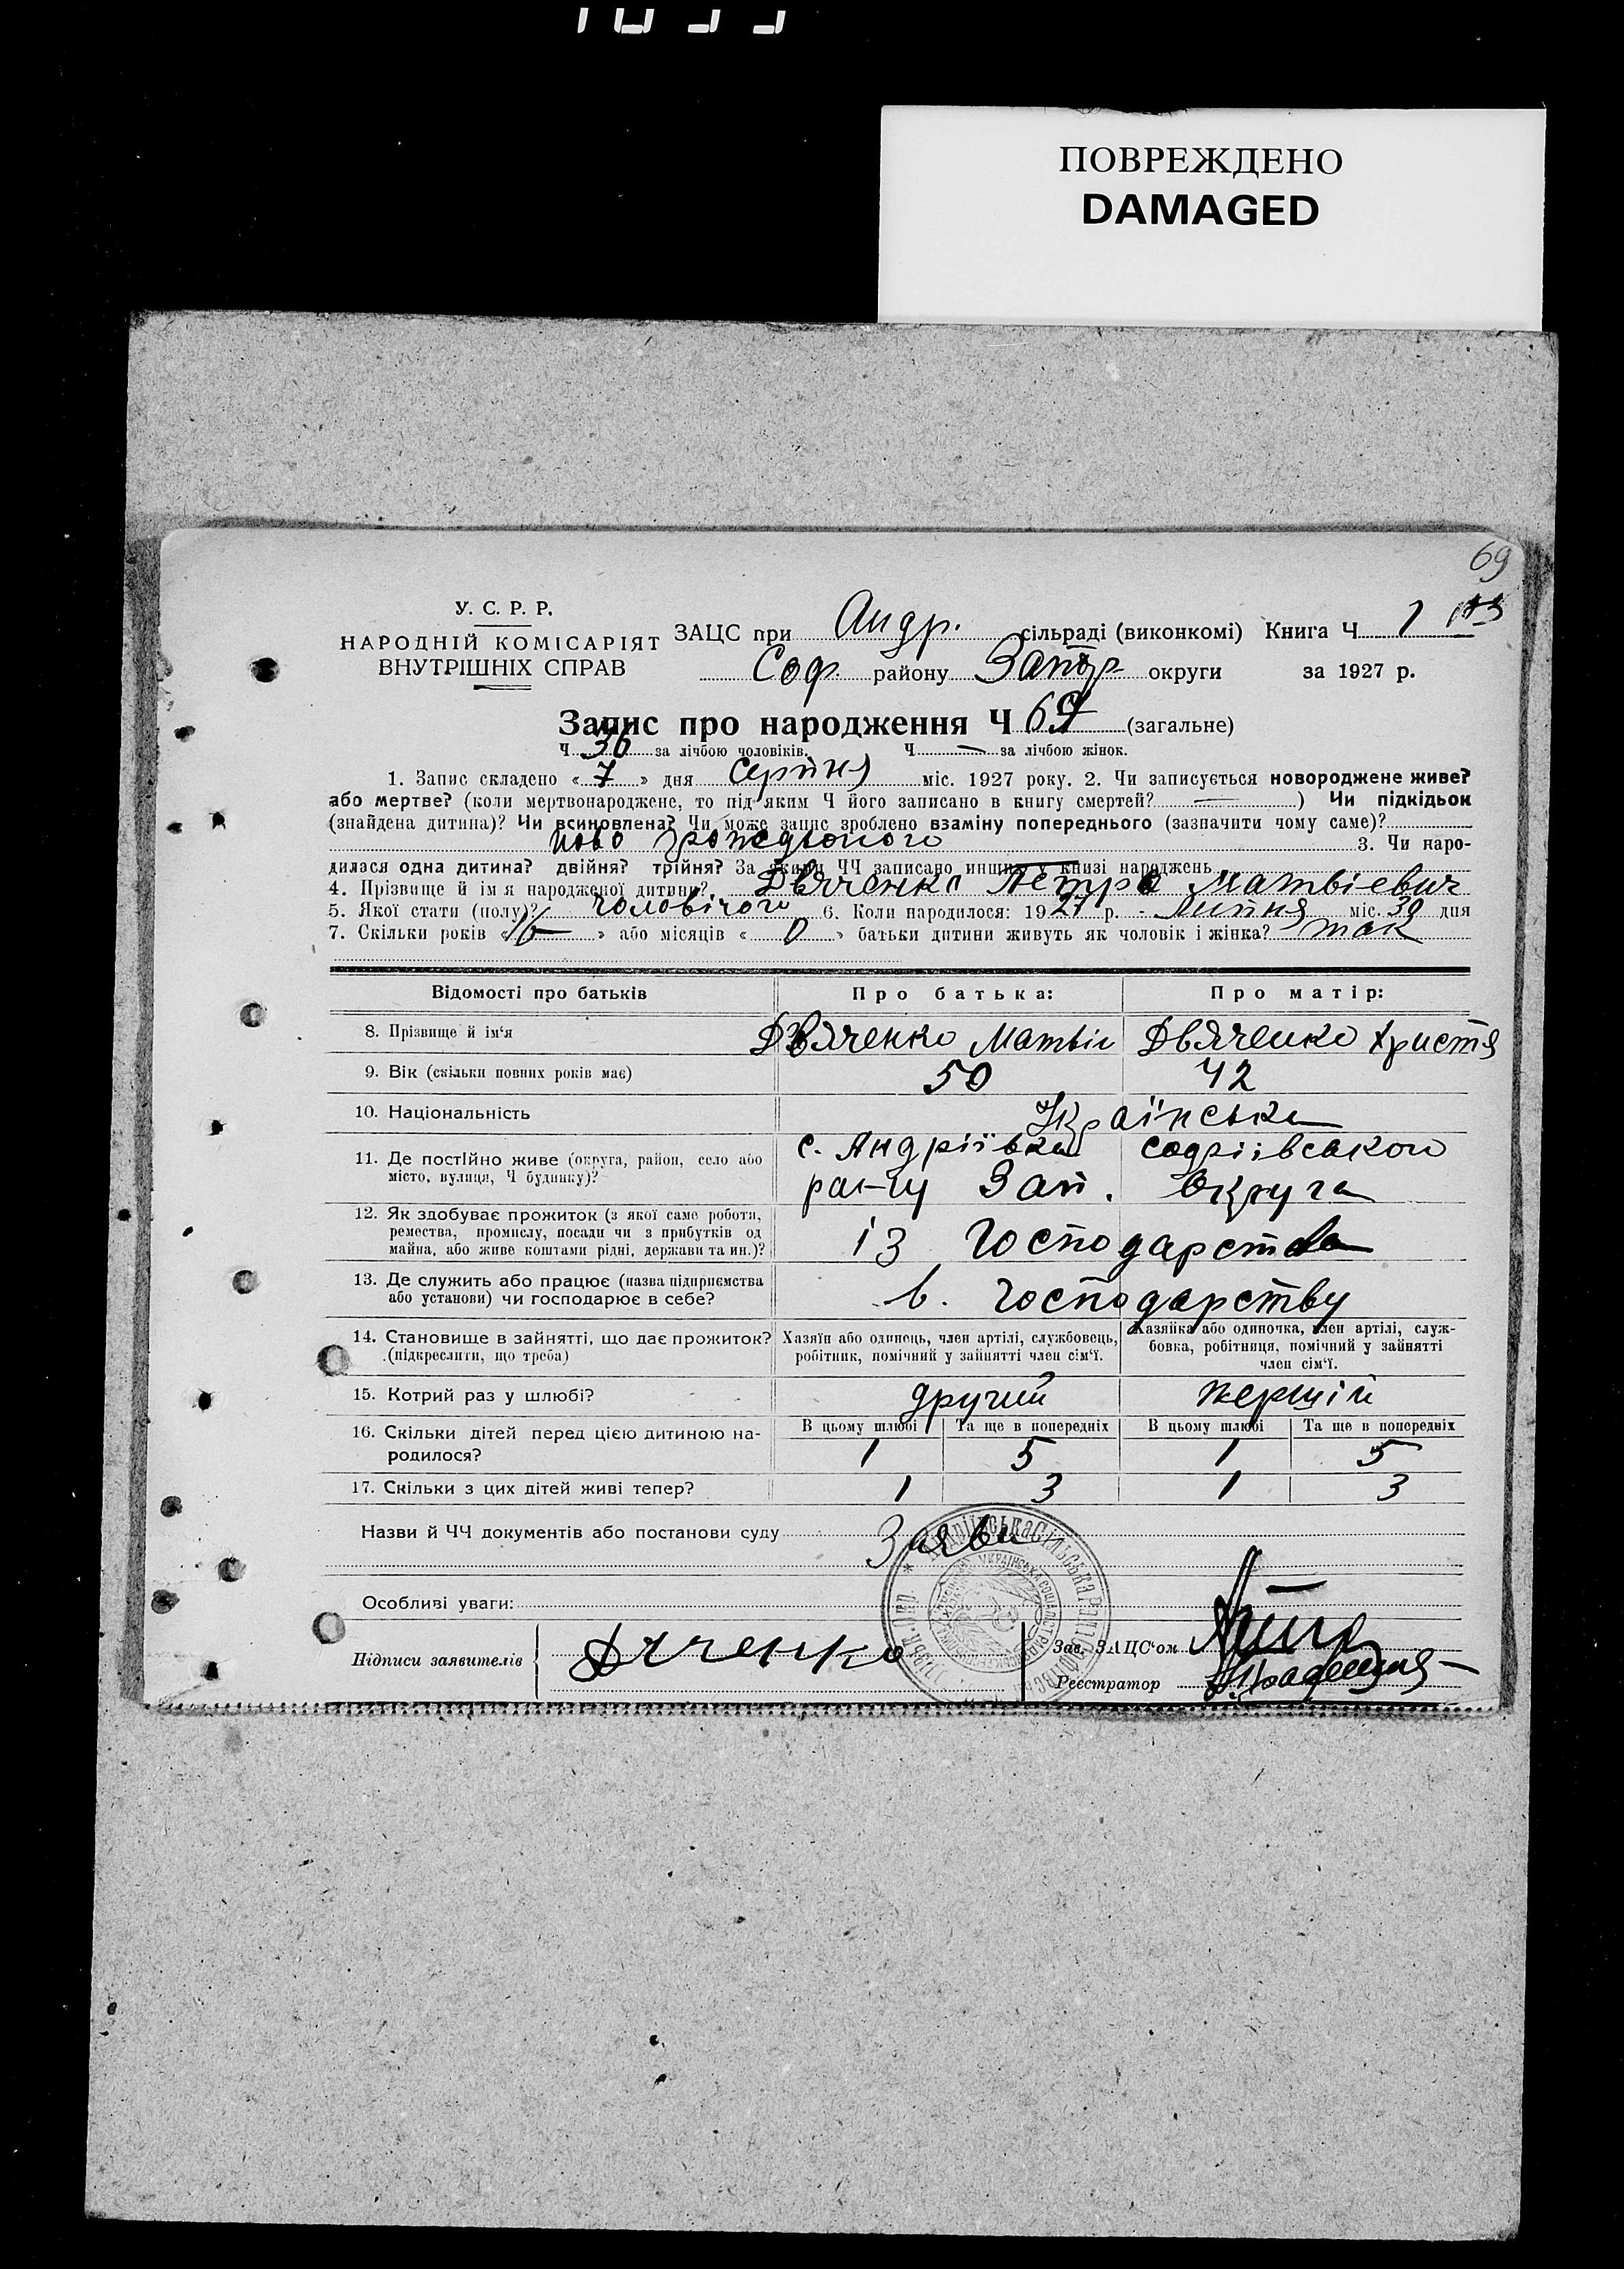 ПОВРЕЖДЕНО
DAMAGED
69
У. С. Р. Р.
НАРОДНІЙ КОМІСАРІЯТ
ВНУТРІШНІХ СПРАВ
ЗАЦС при Андр. сільраді (виконкомі) Книга Ч 1
Соф. району Запор округи за 1927 р.
Запис про народження Ч 69 (загальне)
Ч 36 за лічбою чоловіків. Ч — за лічбою жінок.
1. Запис складено « 7 » дня Серпня міс. 1927 року. 2. Чи записується новороджене живе?
або мертве? (коли мертвонароджене, то під яким Ч його записано в книгу смертей? — ) Чи підкідьок
(знайдена дитина)? Чи всиновлена? Чи може запис зроблено взаміну попереднього (зазначити чому саме)?
ново 3. Чи наро-
дилася одна дитина? двійня? трійня? За якими ЧЧ записано инших у книзі народжень
4. Прізвище й ім'я народженої дитини? Дьяченко Петро Матвієвич
5. Якої стати (полу)? чоловічого 6. Коли народилося: 1927 р. Липня міс. 30 дня
7. Скільки років « » або місяців « 0 » батьки дитини живуть як чоловік і жінка? так
Відомості про батьків Про батька: Про матір:
8. Прізвище й ім'я Дьяченко Матвій Дьяченко Христя
9. Вік (скільки повних років має) 50 42
10. Національність Українська
11. Де постійно живе (округа, район, село або
місто, вулиця, Ч будинку)? с. Андріївка Софіївського
рай-ну Зап. Округа
12. Як здобуває прожиток (з якої саме роботи,
ремества, промислу, посади чи з прибутків од
майна, або живе коштами рідні, держави та ин.)? із господарства
13. Де служить або працює (назва підприємства
або установи) чи господарює в себе? в. господарству
14. Становище в зайнятті, що дає прожиток?
(підкреслити, що треба)
Хазяїн або одинець, член артілі, службовець,
робітник, помічний у зайнятті член сім'ї.
Хазяйка або одиночка, член артілі, служ-
бовка, робітниця, помічний у зайнятті
член сім'ї.
15. Котрий раз у шлюбі? другий перший
В цьому шлюбі Та ще в попередніх В цьому шлюбі Та ще в попередніх
16. Скільки дітей перед цією дитиною на-
родилося? 1 5 1 5
17. Скільки з цих дітей живі тепер? 1 3 1 3
Назви й ЧЧ документів або постанови суду Заяви
Особливі уваги:
Підписи заявителів Дяченко
Зав. ЗАЦС'ом
Реєстратор